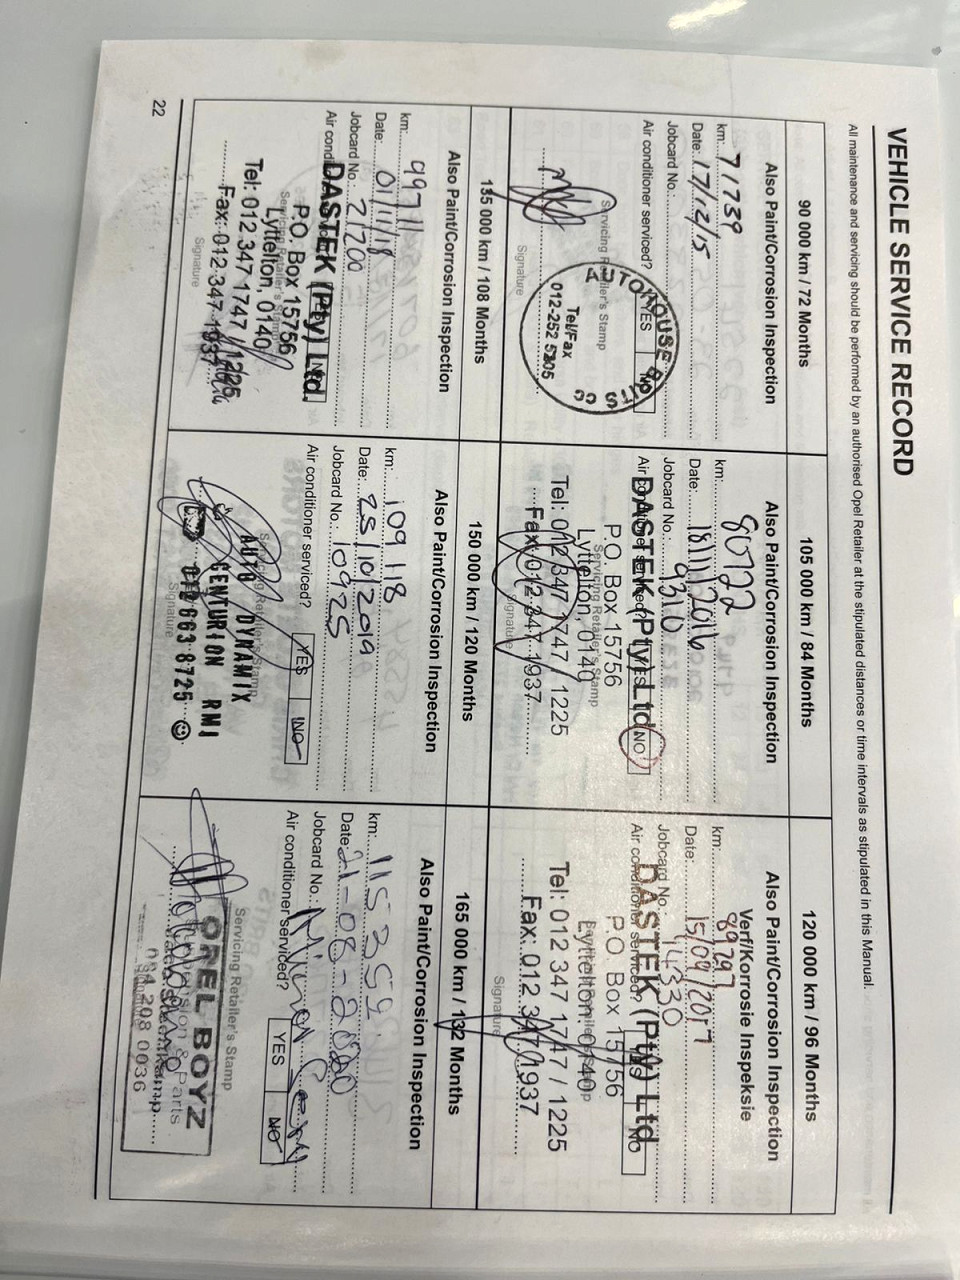 VEHICLE SERVICE RECORD
All maintenance and servicing should be performed by an authorised Opel Retailer at the stipulated distances or time intervals as stipulated in this Manual.
90 000 km / 72 Months
Also Paint/Corrosion Inspection
km: 71739
Date: 17/12/15
Jobcard No.:
Air conditioner serviced? YES NO
Servicing Retailer's Stamp
AUTOHOUSE BRITS CC
Tel/Fax
012-252 5205
Signature
105 000 km / 84 Months
Also Paint/Corrosion Inspection
km: 80722
Date: 18/11/2016
Jobcard No.: 9310
Air conditioner serviced? YES NO
DASTEK (Pty) Ltd
P.O. Box 15756
Servicing Retailer's Stamp
Lyttelton, 0140
Tel: 012 347 1747 / 1225
Fax: 012 347 1937
Signature
120 000 km / 96 Months
Also Paint/Corrosion Inspection
Verf/Korrosie Inspeksie
km: 89297
Date: 15/09/2017
Jobcard No.: 14330
Air conditioner serviced? YES NO
DASTEK (Pty) Ltd
P.O. Box 15756
Lyttelton, 0140
Tel: 012 347 1747 / 1225
Fax: 012 347 1937
Signature
135 000 km / 108 Months
Also Paint/Corrosion Inspection
km: 99711
Date: 01/11/18
Jobcard No.: 21200
Air
DASTEK (Pty) Ltd.
P.O. Box 15756
Servicing Retailer's Stamp
Lyttelton, 0140
Tel: 012 347 1747 / 1225
Fax: 012 347 1937
Signature
150 000 km / 120 Months
Also Paint/Corrosion Inspection
km: 109 118
Date: 25/10/2019
Jobcard No.: 10925
Air conditioner serviced? YES NO
Servicing Retailer's Stamp
AUTO DYNAMIX
CENTURION RMI
012 663 8725
Signature
165 000 km / 132 Months
Also Paint/Corrosion Inspection
km: 115359
Date: 21-08-2020
Jobcard No.:
Air conditioner serviced? YES NO
Servicing Retailer's Stamp
OPEL BOYZ
& Parts
084 208 0036
22